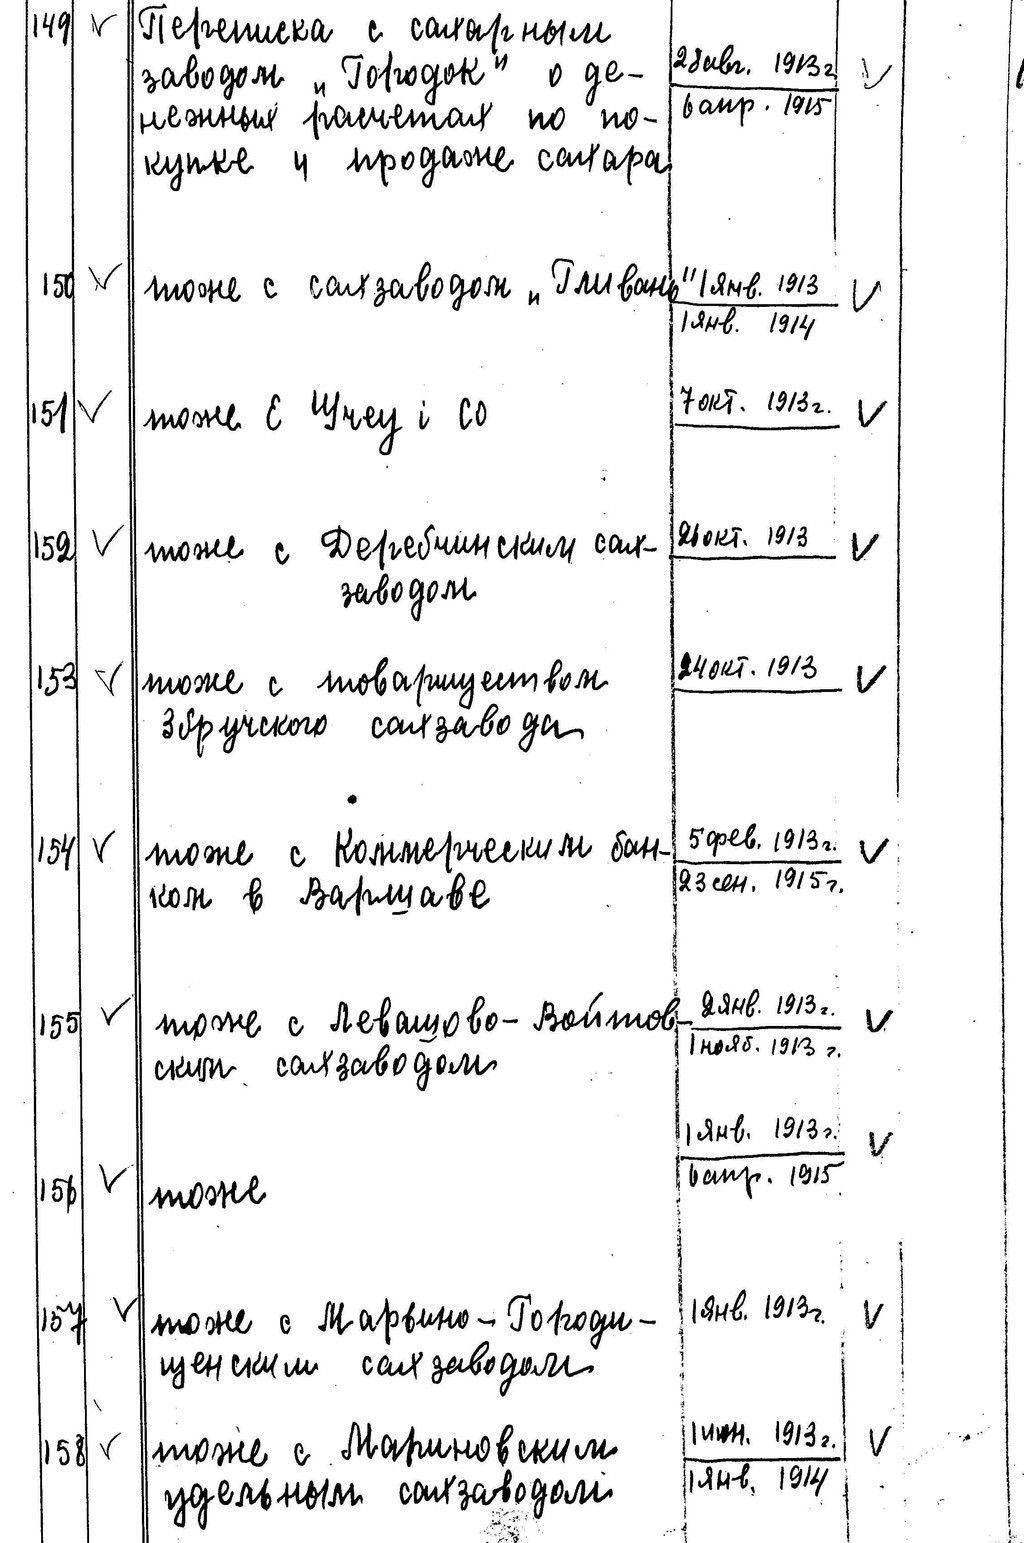 149 Переписка с сахарным
заводом „Городок" о де- 28 авг. 1913 г.
нежных расчетах по по- 6 апр. 1915
купке и продаже сахара
150 тоже с сахзаводом „Гнивань" 1 янв. 1913
1 янв. 1914
151 тоже і Со 7 окт. 1913 г.
152 тоже с Деребчинским сах- 26 окт. 1913
заводом
153 тоже с товариществом 24 окт. 1913
Збручского сахзавода
154 тоже с Коммерческим бан- 5 фев. 1913 г.
ком в Варшаве 23 сен. 1915 г.
155 тоже с Левашово-Войтов- 2 янв. 1913 г.
ским сахзаводом 1 нояб. 1913 г.
1 янв. 1913 г.
156 тоже 6 апр. 1915
157 тоже с Марьино-Городи- 1 янв. 1913 г.
щенским сахзаводом
158 тоже с Мариновским 1 июн. 1913 г.
удельным сахзаводом 1 янв. 1914